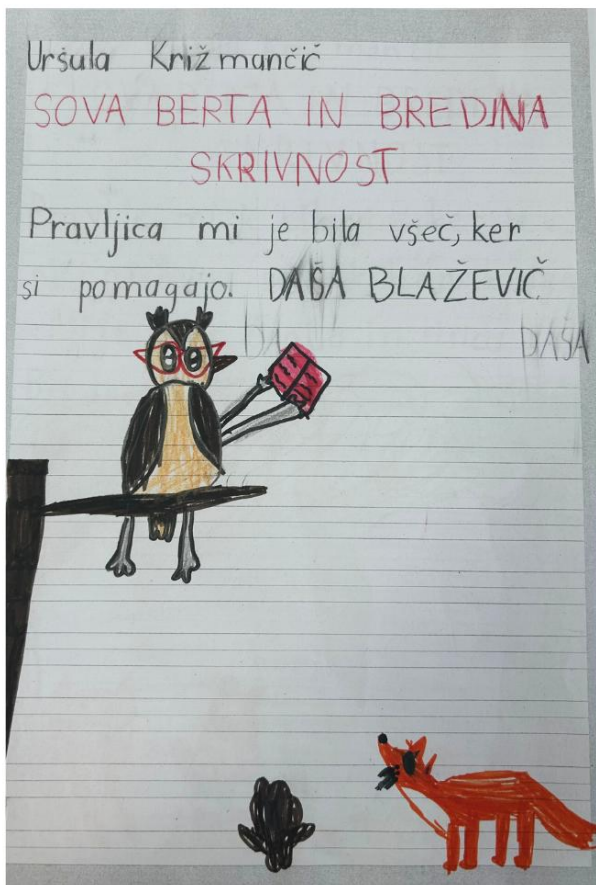 Uršula Križmančič
SOVA BERTA IN BREDINA
SKRIVNOST
Pravljica mi je bila všeč, ker
si pomagajo. DAŠA BLAŽEVIČ
DA DAŠA